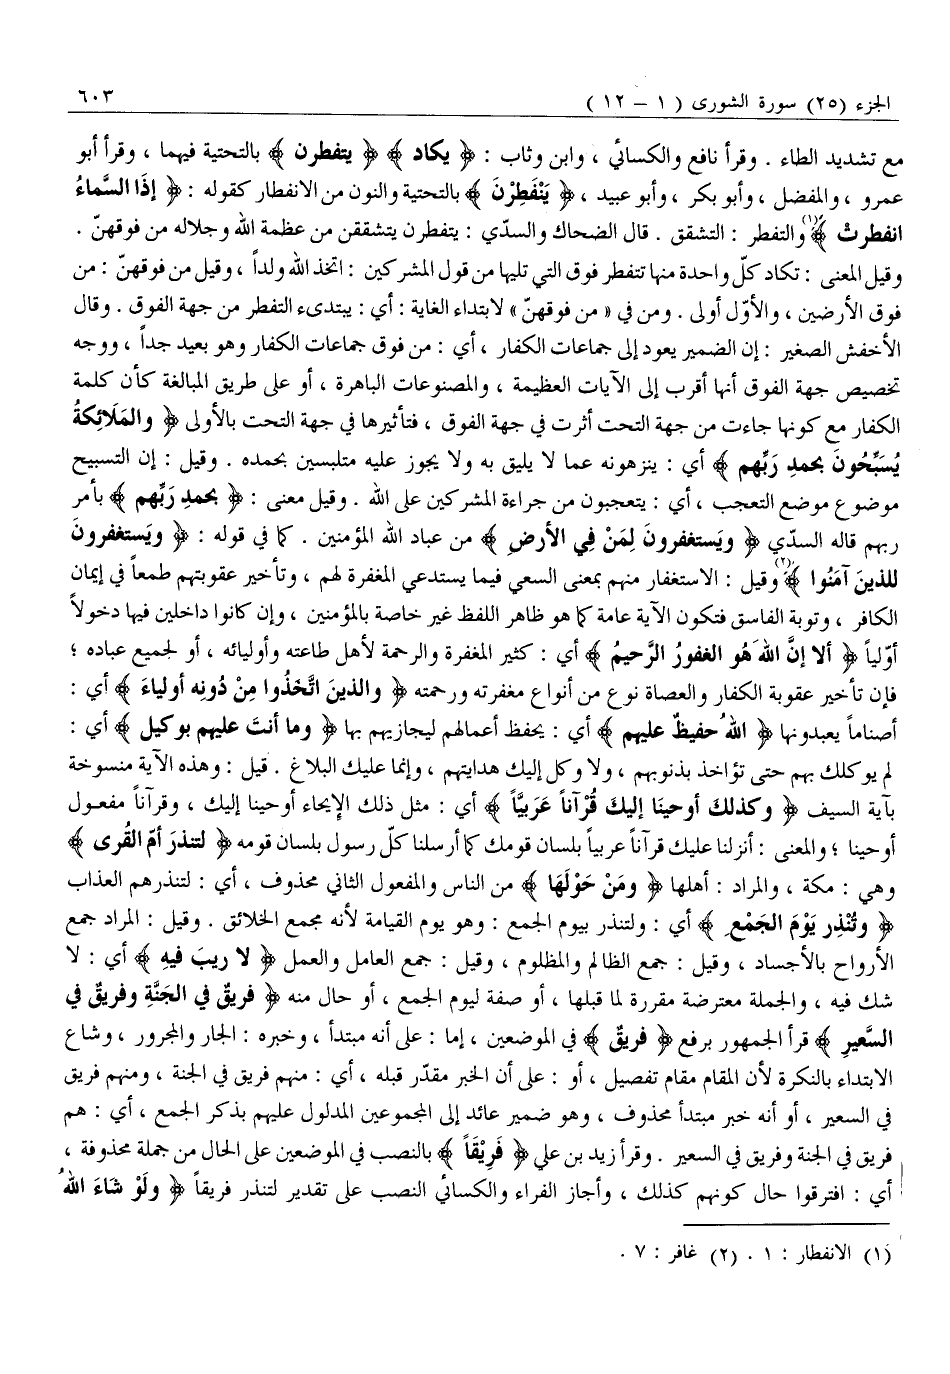 الجزء (٢٥) سورة الشورى ( ١ - ١٢ ) ٦٠٣
مع تشديد الطاء . وقرأ نافع والكسائي ، وابن وثاب : ﴿ يكاد ﴾ ﴿ يتفطرن ﴾ بالتحتية فيهما ، وقرأ أبو
عمرو ، والمفضل ، وأبو بكر ، وأبو عبيد ، ﴿ يَنْفَطِرْنَ ﴾ بالتحتية والنون من الانفطار كقوله : ﴿ إذَا السَّماءُ
انفطرتْ ﴾(١) والتفطر : التشقق . قال الضحاك والسدّي : يتفطرن يتشققن من عظمة الله وجلاله من فوقهنّ .
وقيل المعنى : تكاد كلّ واحدة منها تتفطر فوق التي تليها من قول المشركين : اتخذ الله ولداً ، وقيل من فوقهنّ : من
فوق الأرضين ، والأوّل أولى . ومن في « من فوقهنّ » لابتداء الغاية : أي : يبتدىء التفطر من جهة الفوق . وقال
الأخفش الصغير : إن الضمير يعود إلى جماعات الكفار ، أي : من فوق جماعات الكفار وهو بعيد جداً ، ووجه
تخصيص جهة الفوق أنها أقرب إلى الآيات العظيمة ، والمصنوعات الباهرة ، أو على طريق المبالغة كأن كلمة
الكفار مع كونها جاءت من جهة التحت أثرت في جهة الفوق ، فتأثيرها في جهة التحت بالأولى ﴿ والمَلَائِكةُ
يُسَبِّحُونَ بحمدِ رَبِّهم ﴾ أي : ينزهونه عما لا يليق به ولا يجوز عليه متلبسين بحمده . وقيل : إن التسبيح
موضوع موضع التعجب ، أي : يتعجبون من جراءة المشركين على الله . وقيل معنى : ﴿ بحمدِ رَبِّهم ﴾ بأمر
ربهم قاله السدّي ﴿ ويَستغفرونَ لِمَنْ فِي الأرضِ ﴾ من عباد الله المؤمنين . كما في قوله : ﴿ ويَستغفرونَ
للذينَ آمَنُوا ﴾(٢) وقيل : الاستغفار منهم بمعنى السعي فيما يستدعي المغفرة لهم ، وتأخير عقوبتهم طمعاً في إيمان
الكافر ، وتوبة الفاسق فتكون الآية عامة كما هو ظاهر اللفظ غير خاصة بالمؤمنين ، وإن كانوا داخلين فيها دخولاً
أوّلياً ﴿ ألا إنَّ اللهَ هُو الغفورُ الرَّحيمُ ﴾ أي : كثير المغفرة والرحمة لأهل طاعته وأوليائه ، أو لجميع عباده ؛
فإن تأخير عقوبة الكفار والعصاة نوع من أنواع مغفرته ورحمته ﴿ والذينَ اتَّخَذُوا مِنْ دُونِه أولياءَ ﴾ أي :
أصناماً يعبدونها ﴿ اللهُ حفيظٌ عليهم ﴾ أي : يحفظ أعمالهم ليجازيهم بها ﴿ وما أنتَ عليهم بوكيل ﴾ أي :
لم يوكلك بهم حتى تؤاخذ بذنوبهم ، ولا وكل إليك هدايتهم ، وإنما عليك البلاغ . قيل : وهذه الآية منسوخة
بآية السيف ﴿ وكذلكَ أوحينا إليكَ قُرْآناً عَرَبيَّاً ﴾ أي : مثل ذلك الإيحاء أوحينا إليك ، وقرآناً مفعول
أوحينا ؛ والمعنى : أنزلنا عليك قرآناً عربياً بلسان قومك كما أرسلنا كلّ رسول بلسان قومه ﴿ لتنذرَ أمّ القُرى ﴾
وهي : مكة ، والمراد : أهلها ﴿ ومَنْ حَوْلَهَا ﴾ من الناس والمفعول الثاني محذوف ، أي : لتنذرهم العذاب
﴿ وتُنْذِر يَوْمَ الجَمْعِ ﴾ أي : ولتنذر بيوم الجمع : وهو يوم القيامة لأنه مجمع الخلائق . وقيل : المراد جمع
الأرواح بالأجساد ، وقيل : جمع الظالم والمظلوم ، وقيل : جمع العامل والعمل ﴿ لا ريبَ فيهِ ﴾ أي : لا
شك فيه ، والجملة معترضة مقررة لما قبلها ، أو صفة ليوم الجمع ، أو حال منه ﴿ فريقٌ في الجَنَّةِ وفريقٌ في
السَّعيرِ ﴾ قرأ الجمهور برفع ﴿ فريقٌ ﴾ في الموضعين ، إما : على أنه مبتدأ ، وخبره : الجار والمجرور ، وشاع
الابتداء بالنكرة لأن المقام مقام تفصيل ، أو : على أن الخبر مقدّر قبله ، أي : منهم فريق في الجنة ، ومنهم فريق
في السعير ، أو أنه خبر مبتدأ محذوف ، وهو ضمير عائد إلى المجموعين المدلول عليهم بذكر الجمع ، أي : هم
فريق في الجنة وفريق في السعير . وقرأ زيد بن علي ﴿ فَرِيْقاً ﴾ بالنصب في الموضعين على الحال من جملة محذوفة ،
أي : افترقوا حال كونهم كذلك ، وأجاز الفراء والكسائي النصب على تقدير لتنذر فريقاً ﴿ ولَوْ شاءَ اللهُ
(١) الانفطار : ١ . (٢) غافر : ٧ .